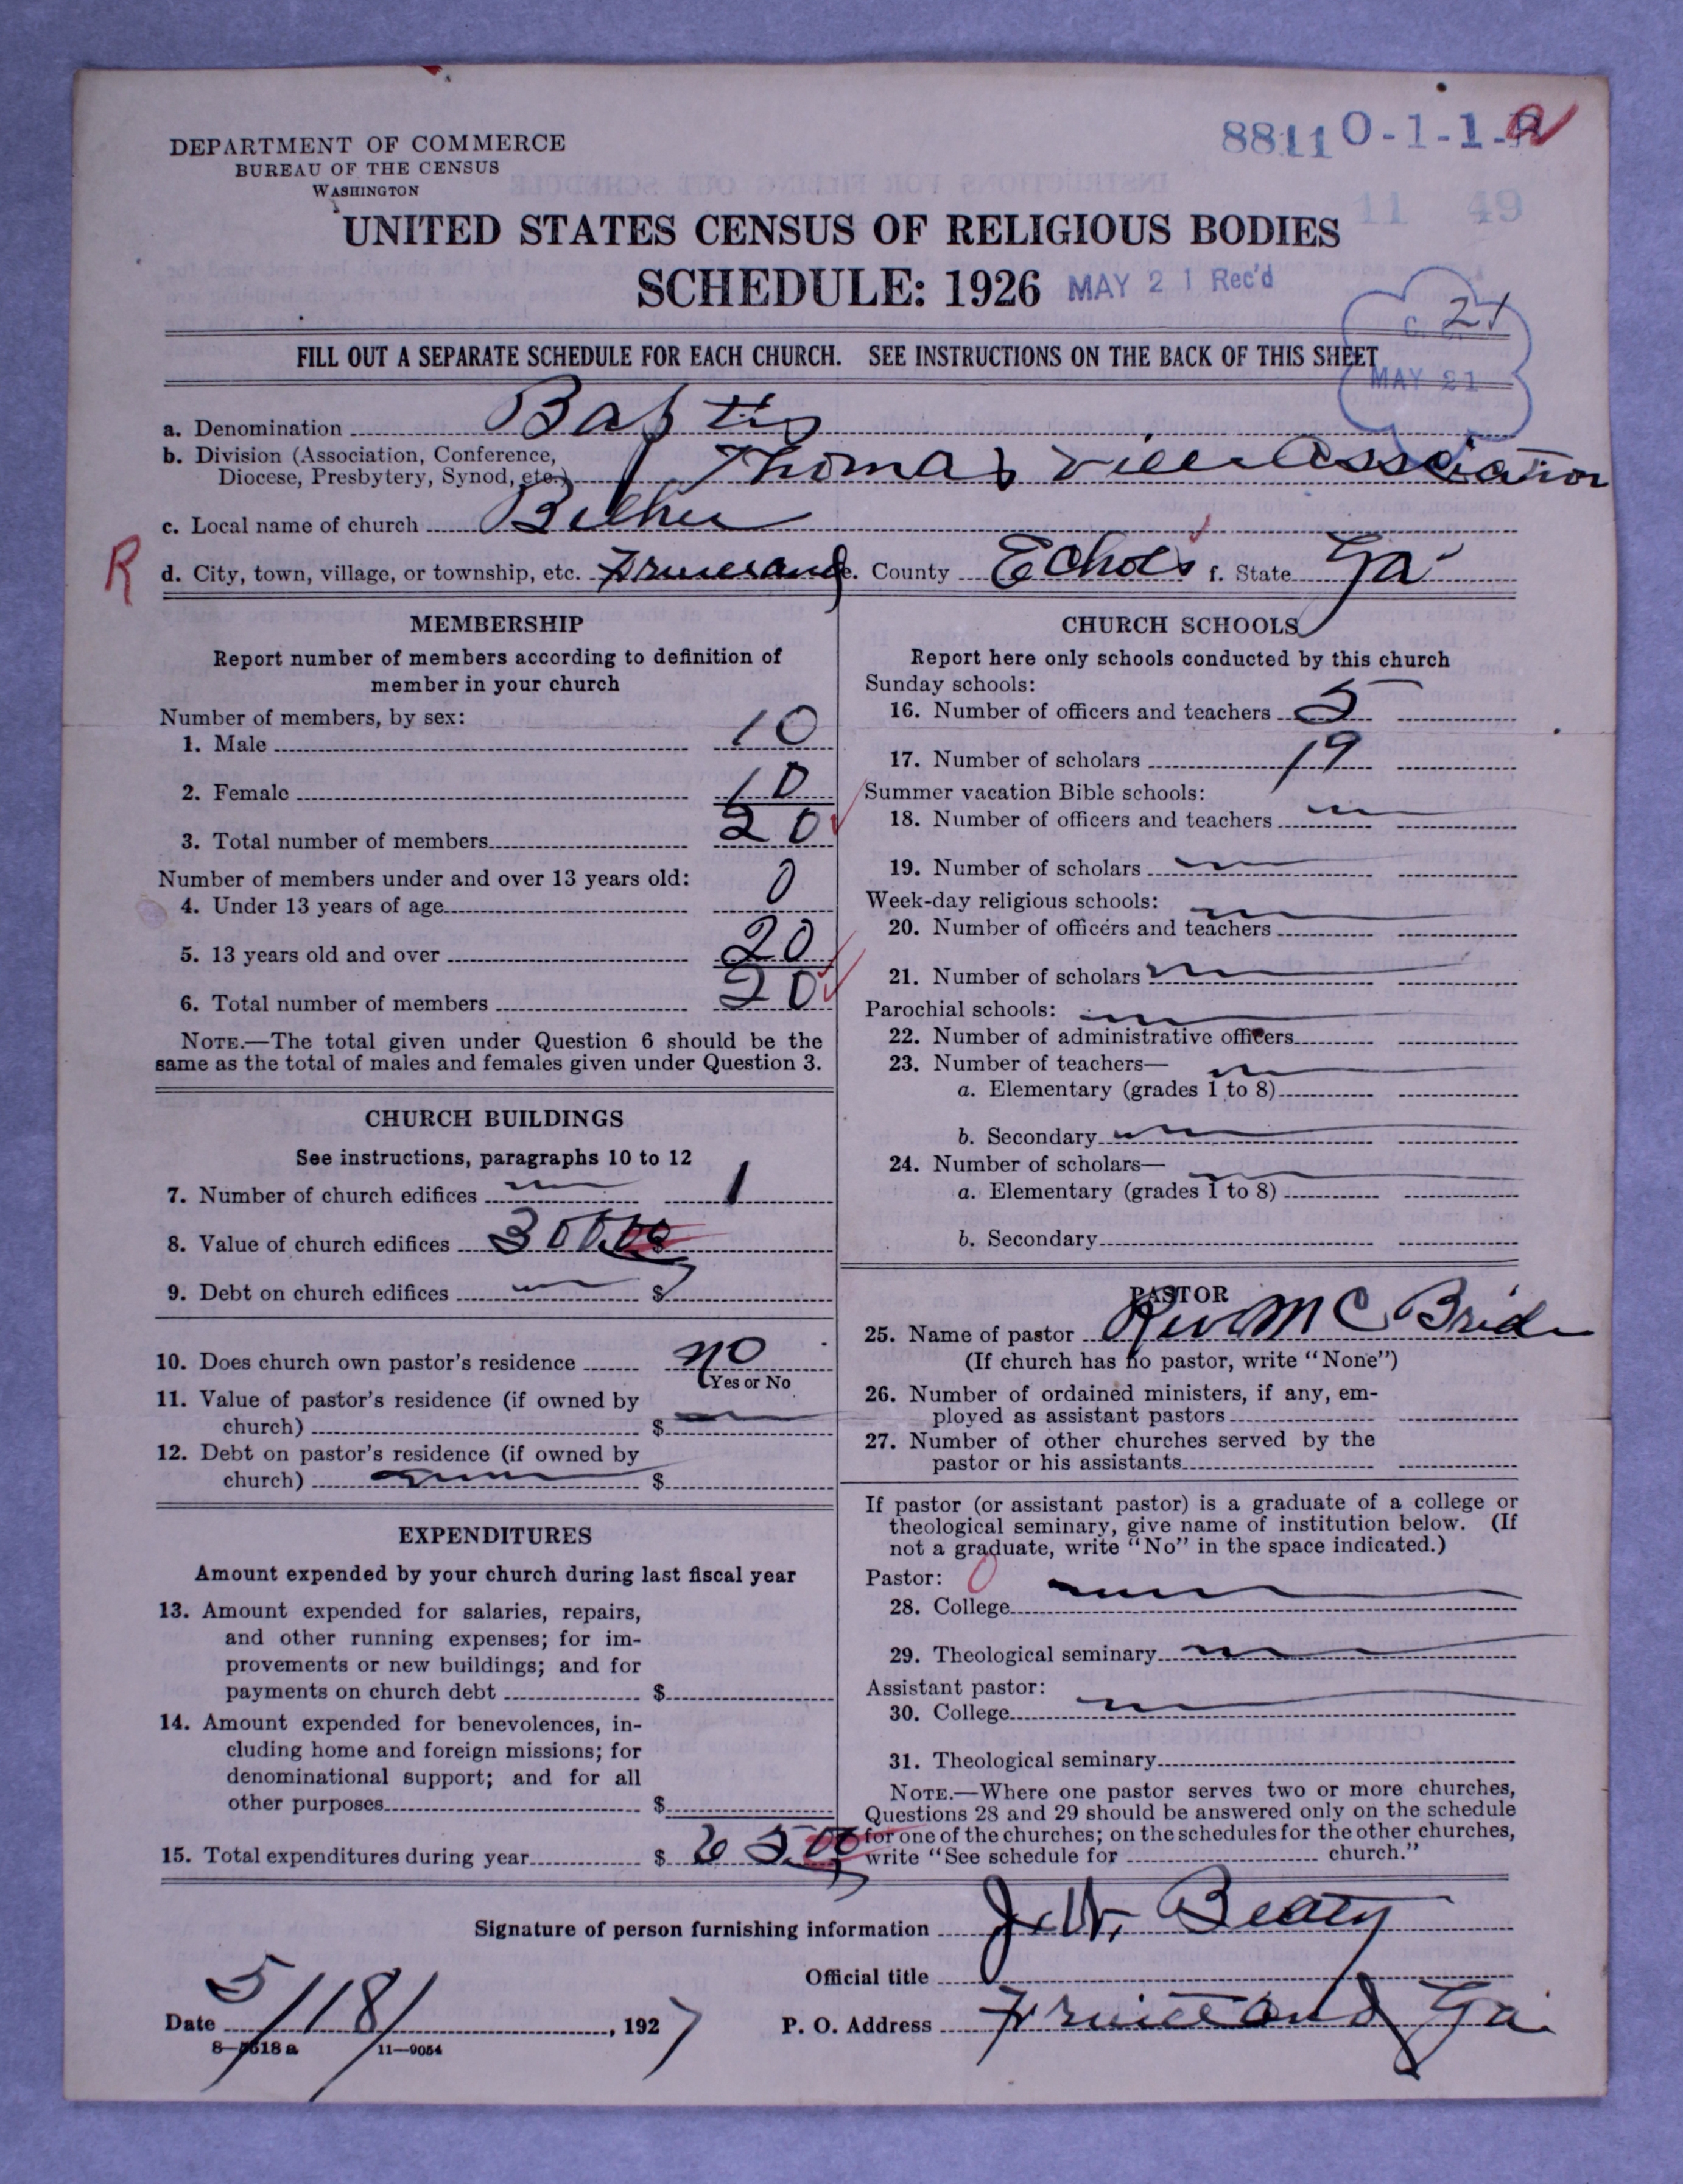 88110-1-1-
11 49
DEPARTMENT OF COMMERCE
BUREAU OF THE CENSUS
WASHINGTON
UNITED STATES CENSUS OF RELIGIOUS BODIES
SCHEDULE: 1926 MAY 21 Rec'd
MAY 21
FILL OUT A SEPARATE SCHEDULE FOR EACH CHURCH. SEE INSTRUCTIONS ON THE BACK OF THIS SHEET
a. Denomination Baptis
b. Division (Association, Conference,
Diocese, Presbytery, Synod, etc.) Thomasville Association
c. Local name of church
R d. City, town, village, or township, etc. e. County Echols f. State Ga
MEMBERSHIP
Report number of members according to definition of
member in your church
Number of members, by sex:
1. Male 10
2. Female 10
3. Total number of members 20
Number of members under and over 13 years old:
4. Under 13 years of age 0
5. 13 years old and over 20
6. Total number of members 20
NOTE.—The total given under Question 6 should be the
same as the total of males and females given under Question 3.
CHURCH BUILDINGS
See instructions, paragraphs 10 to 12
7. Number of church edifices 1
8. Value of church edifices 300.00
9. Debt on church edifices $
10. Does church own pastor's residence no
Yes or No
11. Value of pastor's residence (if owned by
church) $
12. Debt on pastor's residence (if owned by
church) $
EXPENDITURES
Amount expended by your church during last fiscal year
13. Amount expended for salaries, repairs,
and other running expenses; for im-
provements or new buildings; and for
payments on church debt $
14. Amount expended for benevolences, in-
cluding home and foreign missions; for
denominational support; and for all
other purposes $
15. Total expenditures during year $ 65.00
CHURCH SCHOOLS
Report here only schools conducted by this church
Sunday schools:
16. Number of officers and teachers 5
17. Number of scholars 19
Summer vacation Bible schools:
18. Number of officers and teachers
19. Number of scholars
Week-day religious schools:
20. Number of officers and teachers
21. Number of scholars
Parochial schools:
22. Number of administrative officers
23. Number of teachers—
a. Elementary (grades 1 to 8)
b. Secondary
24. Number of scholars—
a. Elementary (grades 1 to 8)
b. Secondary
PASTOR
25. Name of pastor Rev Mc Bride
(If church has no pastor, write "None")
26. Number of ordained ministers, if any, em-
ployed as assistant pastors
27. Number of other churches served by the
pastor or his assistants
If pastor (or assistant pastor) is a graduate of a college or
theological seminary, give name of institution below. (If
not a graduate, write "No" in the space indicated.)
Pastor: 0
28. College
29. Theological seminary
Assistant pastor:
30. College
31. Theological seminary
NOTE.—Where one pastor serves two or more churches,
Questions 28 and 29 should be answered only on the schedule
for one of the churches; on the schedules for the other churches,
write "See schedule for church."
Signature of person furnishing information J. W. Beaty
Official title
Date 5/18/, 1927 P. O. Address Fruitland Ga.
8—5618 a 11—9054